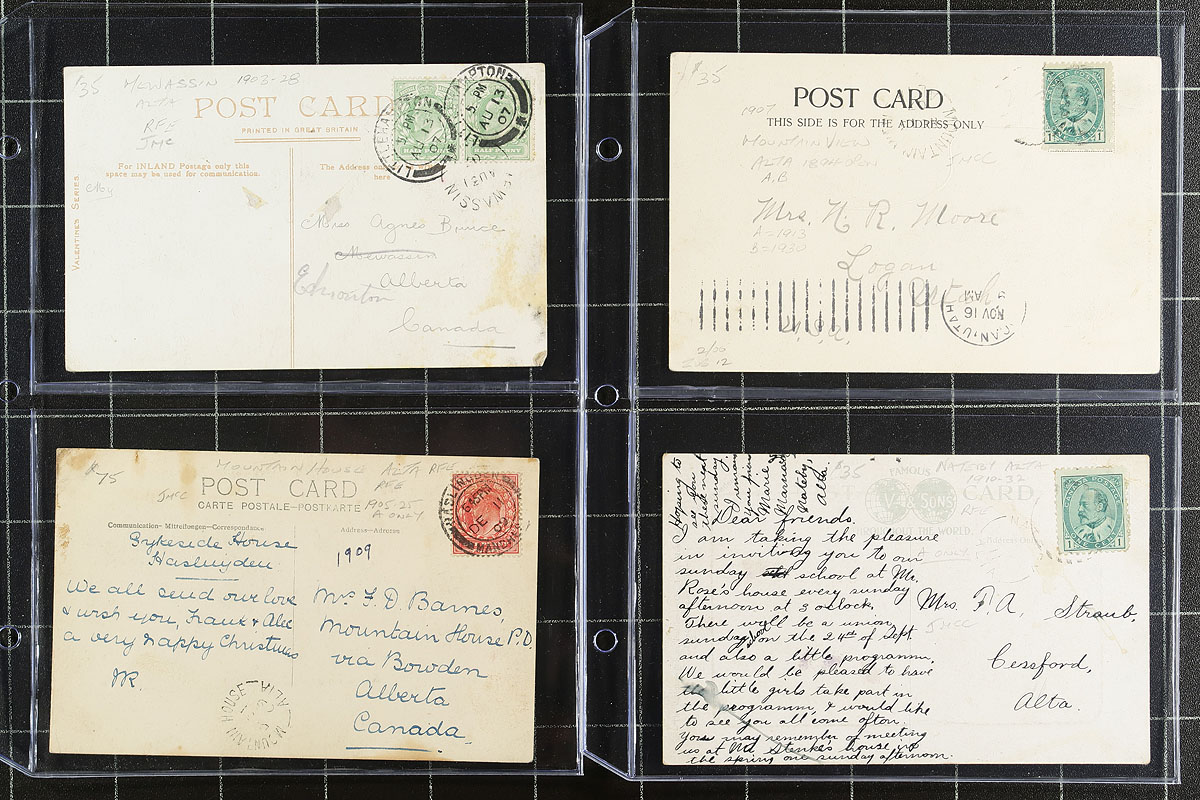 $35 MEWASSIN 1903-28
ALTA
RFE
JMC
POST CARD
PRINTED IN GREAT BRITAIN
For INLAND Postage only this
space may be used for communication.
The Address
here
VALENTINE'S SERIES.
LITTLEHAMPTON
PM
AU 13
07
AMPTON
5 PM
AU 13
07
HALF PENNY
AU 31
EWASSIN
Miss Agnes Bruce
Mewassin
Edmonton
Alberta
Canada
$35
1907
POST CARD
THIS SIDE IS FOR THE ADDRESS ONLY
MOUNTAIN VIEW
JMCC
A.B
Mrs. N. R. Moore
A=1913
B=1930
Logan
Utah
U.S.A.
GAN, UTAH
NOV 16
AM
$75 MOUNTAIN HOUSE ALTA RFE
JMCC
RFE
1905-25
A ONLY
POST CARD
CARTE POSTALE—POSTKARTE
Communication—Mitteilungen—Correspondance
Address—Adresse
MANCH
DE
Sykeside House
Haslingden
1909
We all send our love
& wish you, Frank & Alec
a very Happy Christmas
Mrs F. D. Barnes,
Mountain House P.O.
via Bowden
Alberta
Canada
MOUNTAIN HOUSE ALTA
$35 NATEBY ALTA
1910-32
RFE
FAMOUS
& SONS
CARD
WORLD.
JMCC
Hoping to
see you
there next
sunday
I remain
Your friend
Marie
Nateby,
Alta.
Dear friends,
I am taking the pleasure
in inviting you to our
sunday school at Mr.
Rose's house every sunday
afternoon at 3 oclock,
There will be a union
sunday school on the 24th of Sept
and also a little programm,
We would be pleased to have
the little girls take part in
the programm, & would like
to see you all come often.
You may remember of meeting
us at Mr. Stenke's house in
the spring one sunday afternoon.
Mrs. F. A. Straub,
Cessford,
Alta.